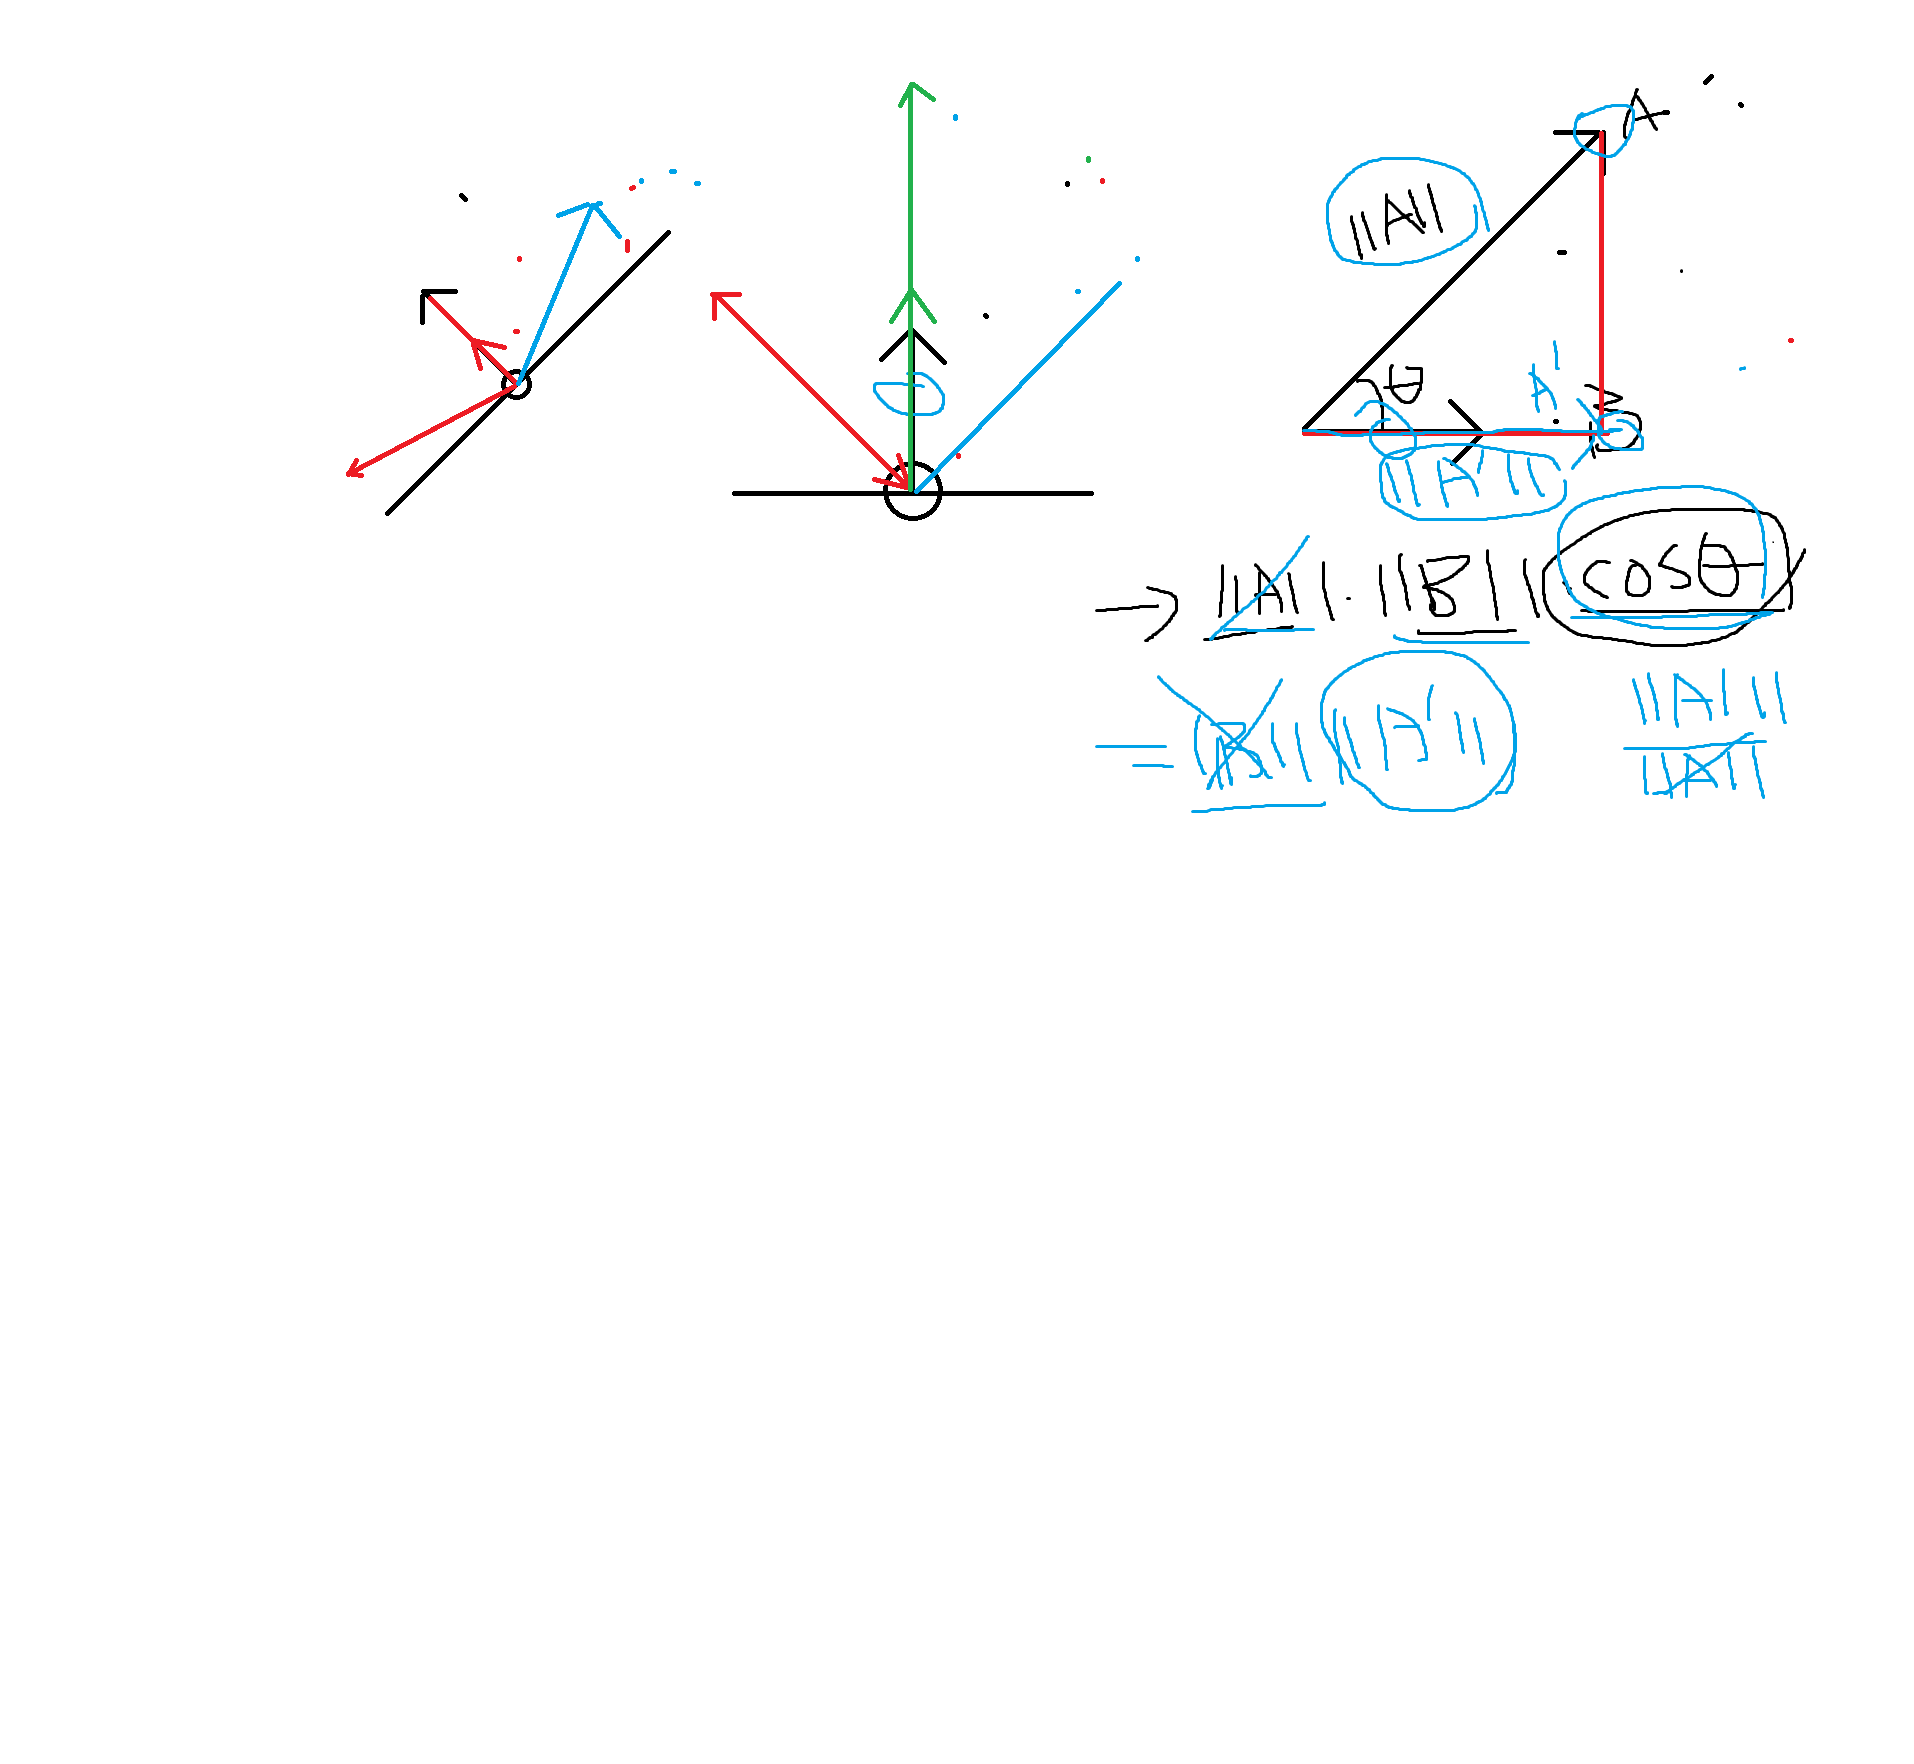 A
||A||
θ
A'
B
||A'||
→ ||A||·||B|| cosθ
= ||B|| ||A'||
||A'||
||A||